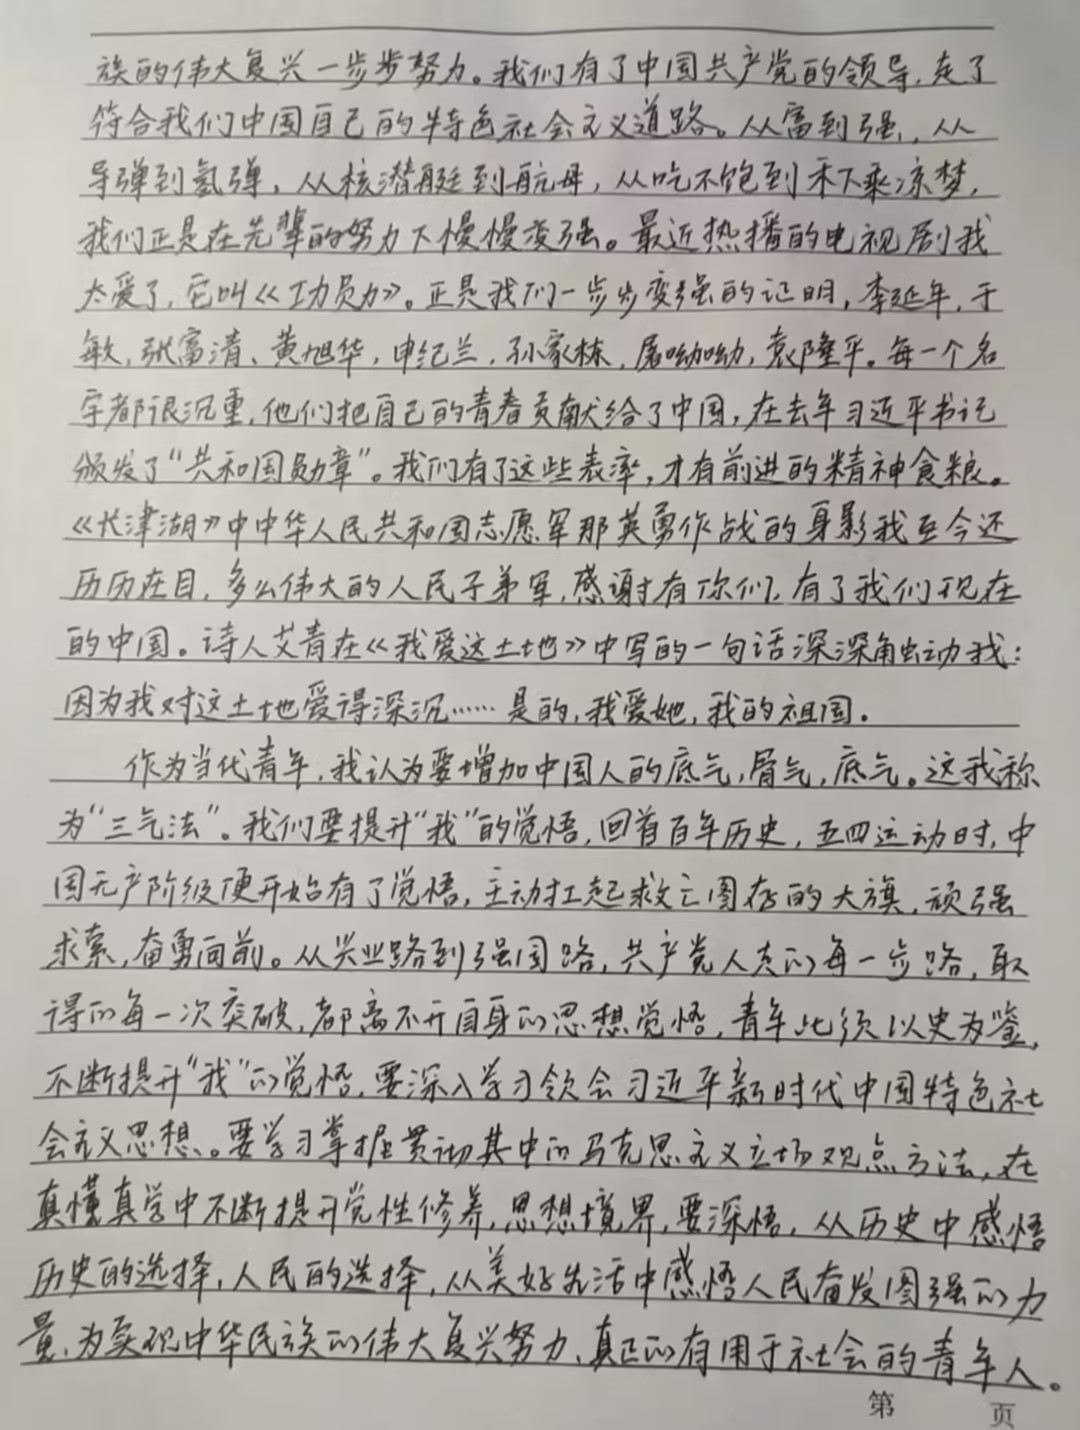 族的伟大复兴一步步努力。我们有了中国共产党的领导,走了
符合我们中国自己的特色社会主义道路。从富到强,从
导弹到氢弹,从核潜艇到航母,从吃不饱到禾下乘凉梦,
我们正是在先辈的努力下慢慢变强。最近热播的电视剧我
太爱了,它叫《功勋》。正是我们一步步变强的证明,李延年,于
敏,张富清、黄旭华,申纪兰,孙家栋,屠呦呦,袁隆平。每一个名
字都很沉重,他们把自己的青春贡献给了中国,在去年习近平书记
颁发了“共和国勋章”。我们有了这些表率,才有前进的精神食粮。
《长津湖》中中华人民共和国志愿军那英勇作战的身影我至今还
历历在目,多么伟大的人民子弟军,感谢有你们,有了我们现在
的中国。诗人艾青在《我爱这土地》中写的一句话深深触动我:
因为我对这土地爱得深沉……是的,我爱她,我的祖国。
作为当代青年,我认为要增加中国人的底气,骨气,底气。这我称
为“三气法”。我们要提升“我”的觉悟,回首百年历史,五四运动时,中
国无产阶级便开始有了觉悟,主动扛起救亡图存的大旗,顽强
求索,奋勇向前。从兴业路到强国路,共产党人走的每一步路,取
得的每一次突破,都离不开自身的思想觉悟,青年必须以史为鉴,
不断提升“我”的觉悟,要深入学习领会习近平新时代中国特色社
会主义思想。要学习掌握贯彻其中的马克思主义立场观点方法,在
真懂真学中不断提升党性修养,思想境界,要深悟,从历史中感悟
历史的选择,人民的选择,从美好生活中感悟人民奋发图强的力
量,为实现中华民族的伟大复兴努力、真正的有用于社会的青年人。
第 页